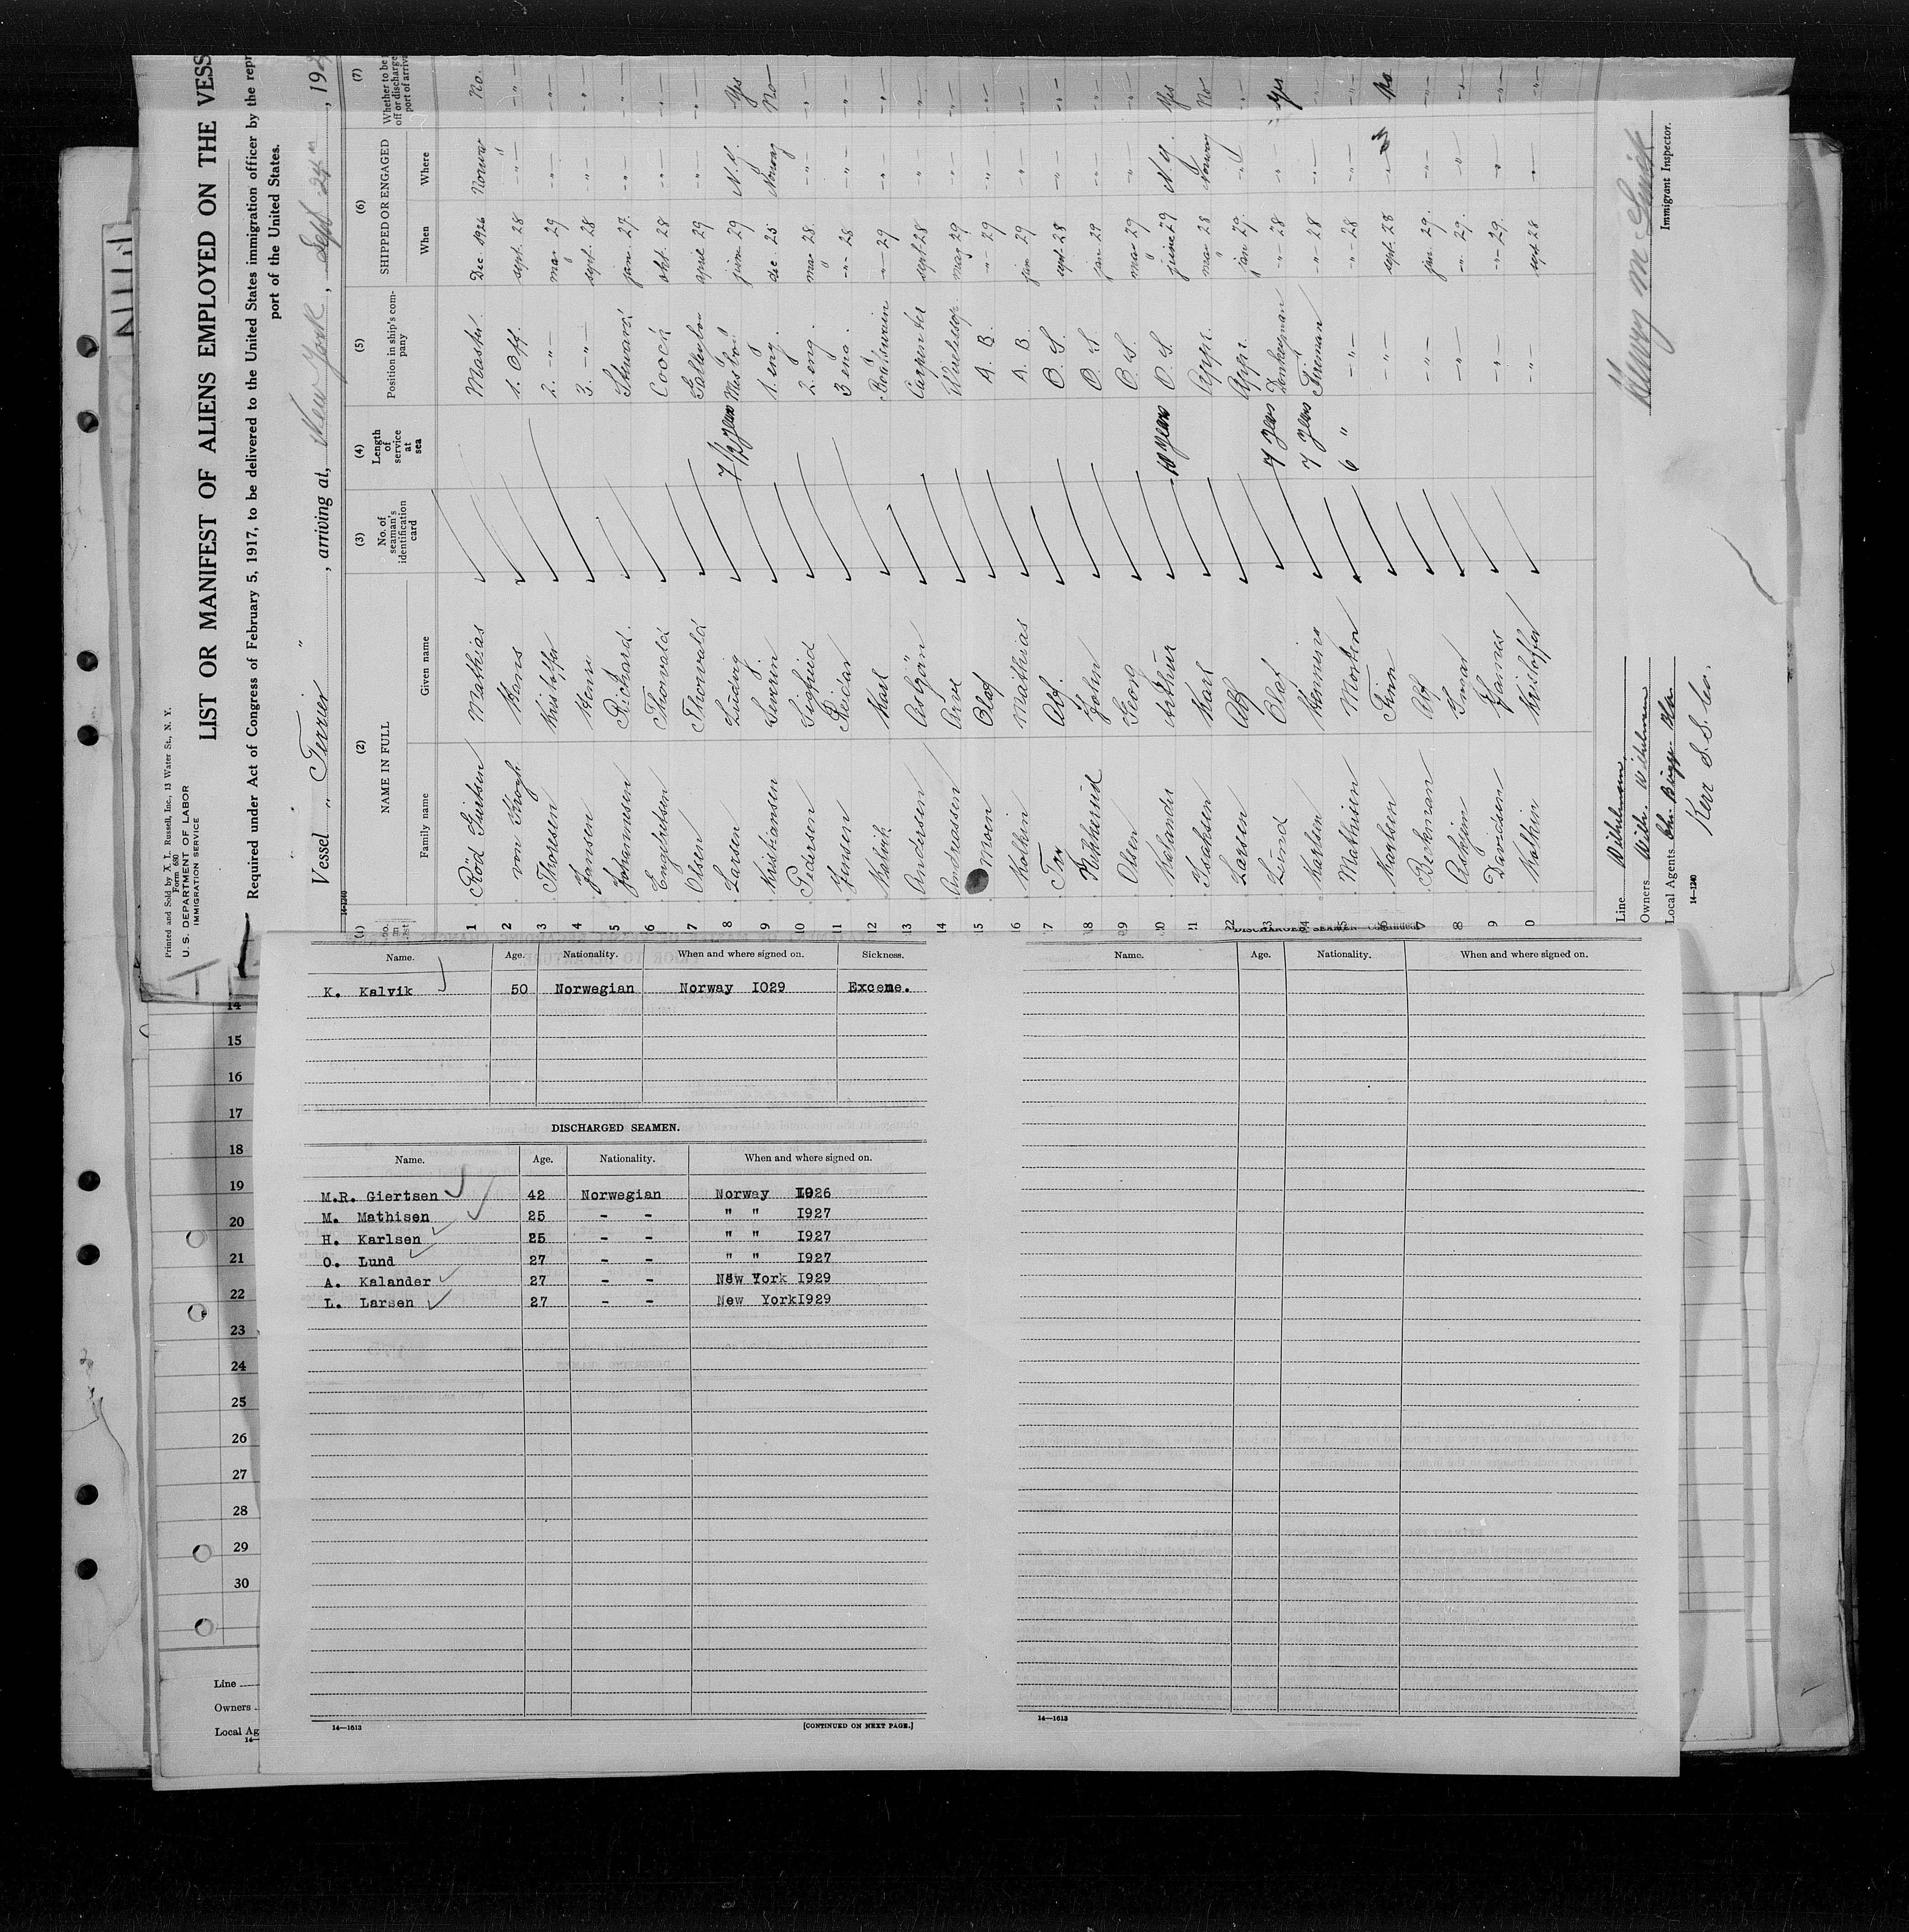 Printed and Sold by A. L. Russell, Inc., 13 Water St., N. Y.
Form 680
U. S. DEPARTMENT OF LABOR
IMMIGRATION SERVICE
LIST OR MANIFEST OF ALIENS EMPLOYED ON THE VESS
Required under Act of Congress of February 5, 1917, to be delivered to the United States immigration officer by the repr
port of the United States.
Vessel " Terrier " , arriving at, New York , Sept 24th , 192
14-1240
(1) (2) (3) (4) (5) (6) (7)
No. in list NAME IN FULL No. of seaman's identification card Length of service at sea Position in ship's com-pany SHIPPED OR ENGAGED Whether to be off or discharge port of arriva
Family name Given name When Where
1 Röd Giertsen Mathias Master Dec. 1926 Norway No.
2 von Krogh Hans 1. Off. sept. 28 -"- -"-
3 Thoresen Kristoffer 2. -"- mar 29 -"- -"-
4 Jansen Hans 3. -"- sept. 28 -"- -"-
5 Johannesen Richard. Stewart jan. 27. -"- -"-
6 Engebretsen Thorvald Coock okt. 28 -"- -"-
7 Olsen Thorvald april 29 -"- -"-
8 Larsen Ludvig 7 1/2 years Messboy june 29 N.Y. Yes
9 Kristiansen Severin 1. eng. dec. 25 Norway No
10 Pedersen Sigfried 2. eng. mar 28. -"- -"-
11 Jensen Reidar 3 eng. -"- 28 -"- -"-
12 Kalvik Karl Boatswain -"- 29 -"- -"-
13 Andersen Asbjön Carpenter sept. 28 -"- -"-
14 Andreassen Arve mar 29 -"- -"-
15 Moen Olaf A. B. -"- 29 -"- -"-
16 Kolkin Mathias A. B. jan 29 -"- -"-
17 Alf. O. S. sept 28 -"- -"-
18 John O. S. jan 29 -"- -"-
19 Olsen Georg O. S. mar 29 -"- -"-
20 Kalander Arthur 10 years O. S. june 29 N.Y. Yes
21 Isaksen Karl Appr. mar 28 Norway No
22 Larsen Alf Appr. jan 29. -"- -"-
23 Lund Olaf 7 years Donkeyman -"- 28 -"- Yes
24 Karlsen Henning 7 years Fireman -"- 28 -"- -"-
25 Mathisen Morten 6 " -"- -"- 28 -"- -"-
26 Karlsen Finn -"- sept. 28 -"- No
27 Beckman Alf -"- jan. 29. -"- -"-
28 Askjem -"- -"- 29. -"- -"-
29 Davidsen Hannes -"- -"- 29. -"- -"-
30 Kolkin Kristoffer -"- sept 28 -"- -"-
Line Wilhelmsen
Owners Wilh. Wilhelmsen
Local Agents
Kerr S.S. Co.
14-1240
Immigrant Inspector.
Name. Age. Nationality. When and where signed on. Sickness.
K. Kalvik 50 Norwegian Norway I029 Exceme.
DISCHARGED SEAMEN.
Name. Age. Nationality. When and where signed on.
M.R. Giertsen 42 Norwegian Norway I926
M. Mathisen 25 - - " " I927
H. Karlsen 25 - - " " I927
O. Lund 27 - - " " I927
A. Kalander 27 - - New York I929
L. Larsen 27 - - New YorkI929
14—1613
[CONTINUED ON NEXT PAGE.]
DISCHARGED SEAMEN—Continued.
Name. Age. Nationality. When and where signed on.
14—1613
14
15
16
17
18
19
20
21
22
23
24
25
26
27
28
29
30
Line
Owners
Local Ag
14—